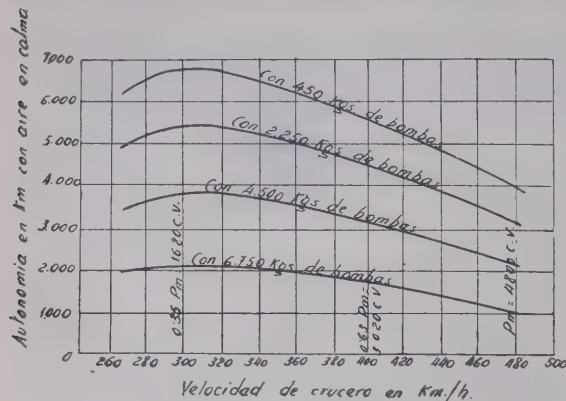 Autonomía en Km con aire en calma
7,000
6.000
5.000
4.000
3.000
2.000
1,000
0
Con 450 Kgs de bombas
Con 2.250 Kgs de bombas
Con 4.500 Kgs de bombas
Con 6.750 Kgs de bombas
0.35 Pm = 1620 C.V.
0.63 Pm =
3 020 C.V
Pm = 4.800 C.V.
260 280 300 320 340 360 380 400 420 440 460 480 500
Velocidad de crucero en Km./h.